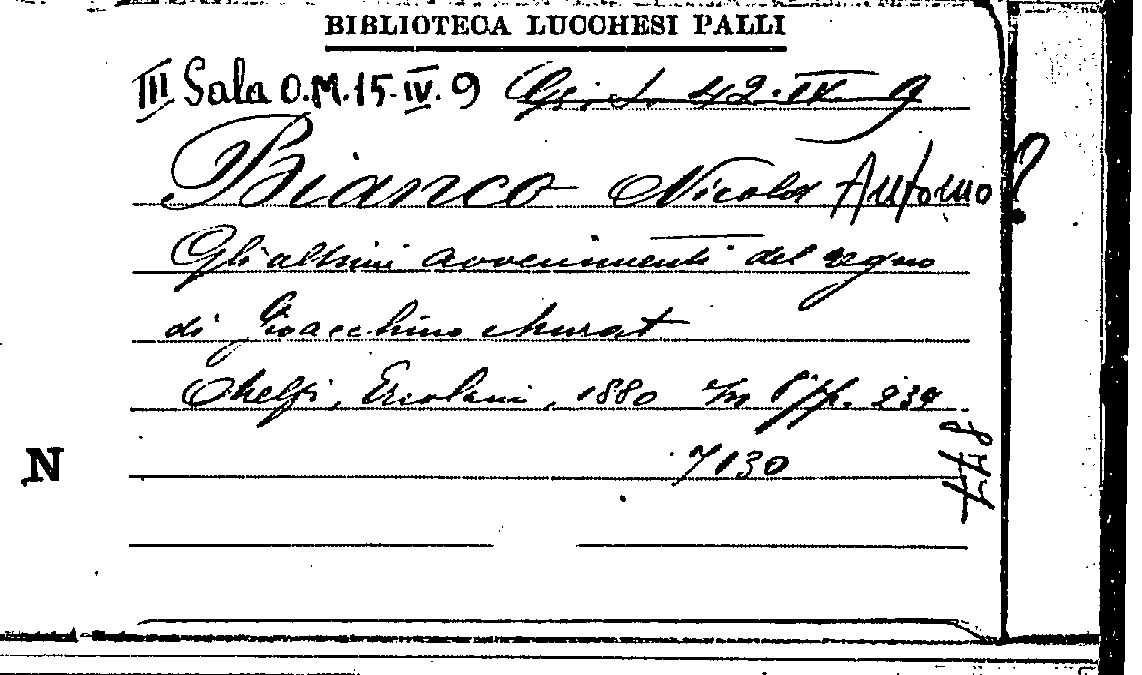 BIBLIOTECA LUCCHESI PALLI
III Sala O.M.15-IV.9 Gi. S. 42. IV. 9
Bianco Nicola Antonio?
Gli ultimi avvenimenti del regno
di Gioacchino Murat
Melfi, Ercolani, 1880 In 8° pp. 239
7130
N